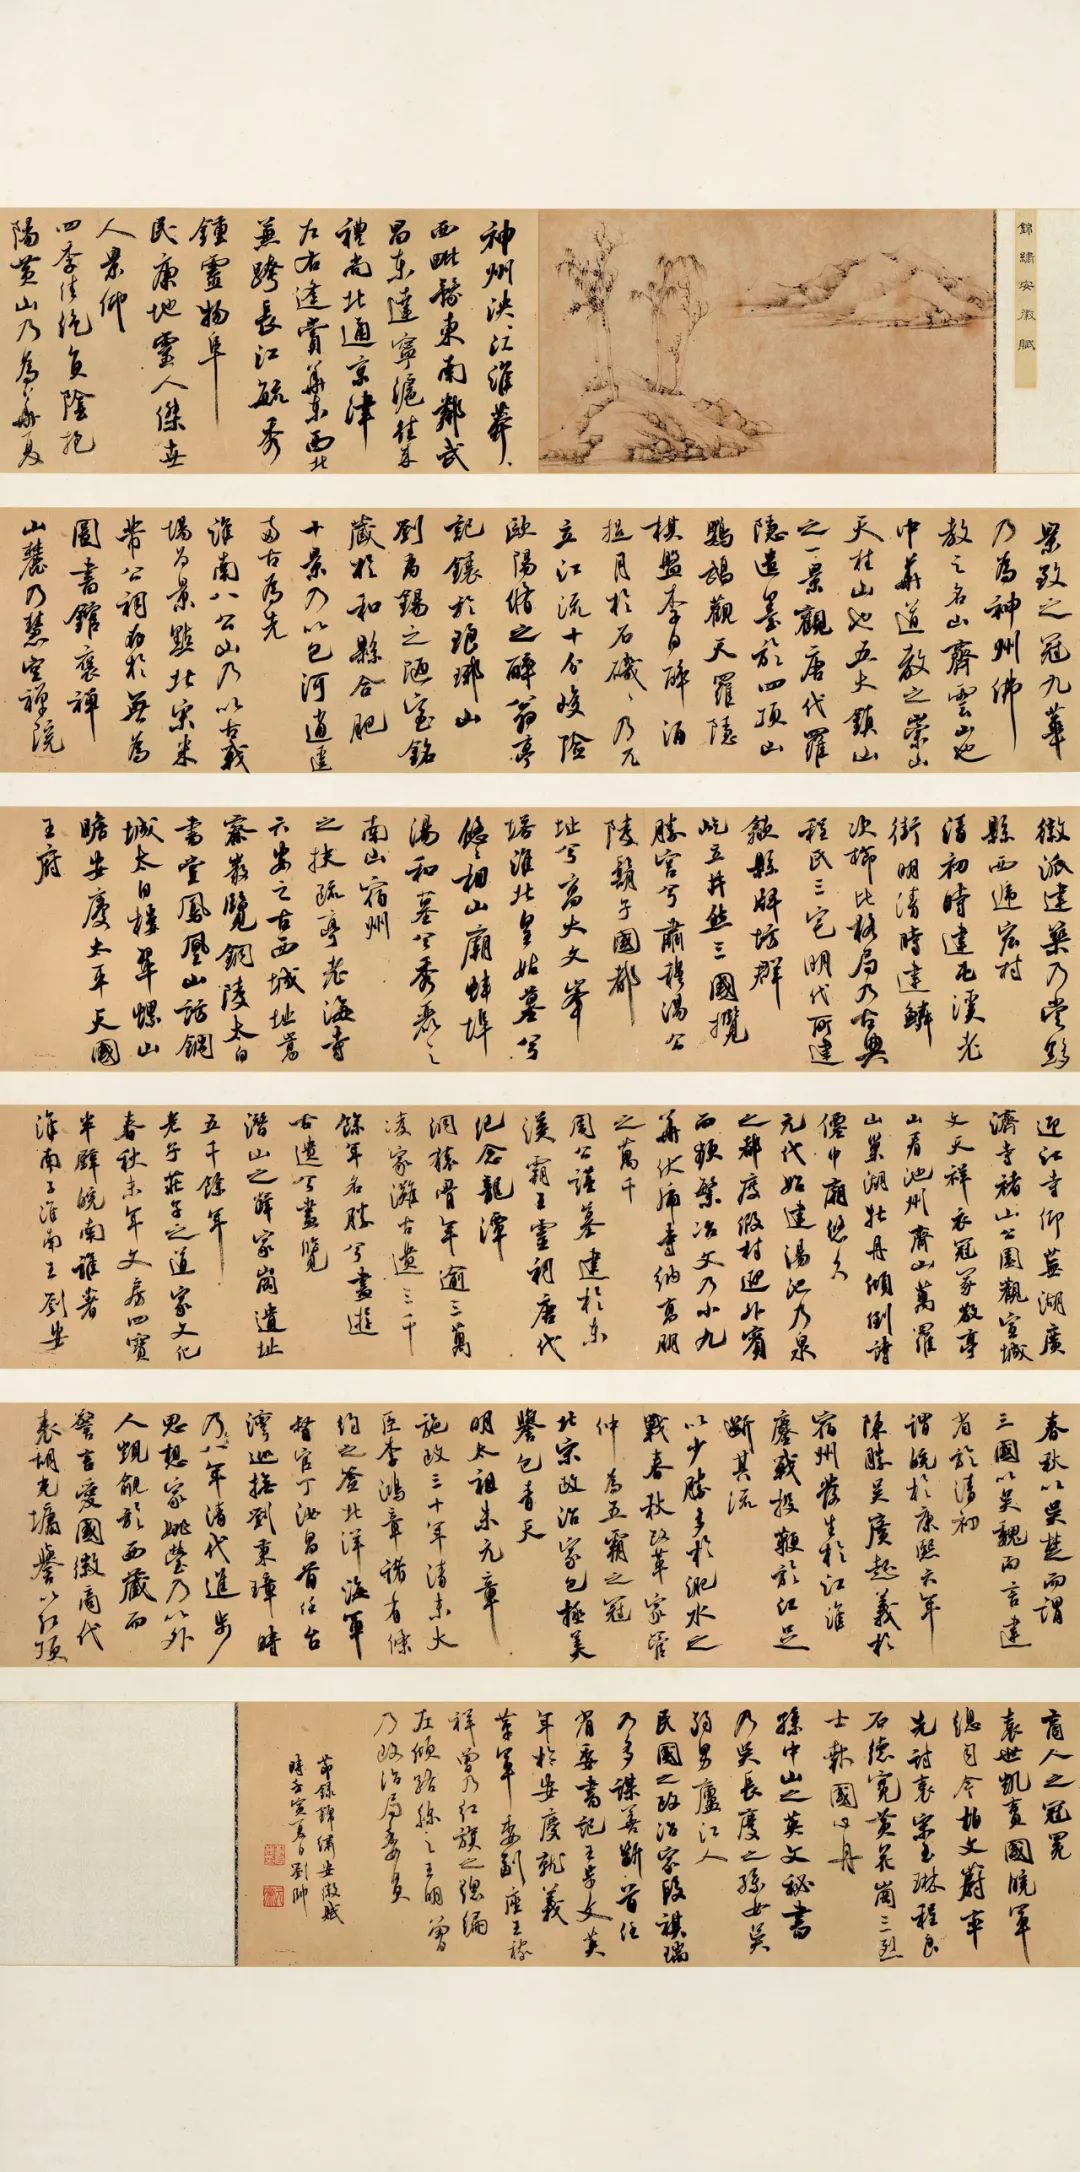 錦繡安徽賦
神州泱〻江淮莽〻
西毗豫東南鄰武
昌東達寧滬
禮尚北通京津
左右逢賞華東西北
兼跨長江毓秀
鍾靈物阜
民康地靈人傑世
人景仰
四季佳境負陰抱
陽黃山乃為華夏
景致之冠九華
乃為神州佛
教之名山齊雲山也
中華道教之崇山
天柱山也五大鎮山
之一景觀唐代羅
隱遺墨於四頂山
鷓鴣觀天羅隱
棋盤李白醉酒
捉月於石磯〻乃兀
立江流十分峻險
歐陽脩之醉翁亭
記鑲於琅琊山
劉禹錫之陋室銘
藏於和縣合肥
十景乃以包河逍遥
為古為先
淮南八公山乃以古戰
場為景點北宋米
芾公祠初於無為
圖書館褒禪
山麓乃慧空禪院
徽派建築乃當黟
縣西遞宏村
清初時建屯溪老
街明清時建鱗
次櫛比格局乃古典
程氏三宅明代所建
歙縣牌坊群
屹立井然三國攬
勝宮兮肅穆湯公
陵鬍子國都
址兮高大文峯
塔淮北皇姑墓兮
悠〻相山廟蚌埠
湯和墓兮秀烝之
南山宿州
之扶疏亭老海寺
六安之古西城址萬
寮岩覽銅陵太白
書堂鳳凰山訪銅
城太白樓翠螺山
瞻安慶太平天國
王府
迎江寺仰蕪湖廣
濟寺赭山公園觀宣城
文天祥衣冠冢敬亭
山看池州齊山萬羅
山巢湖牡丹傾倒詩
僊中廟悠久
元代始建湯池乃泉
之都度假村迎外賓
而頻繁冶父乃小九
華伏虎寺納高朋
之萬千
周公瑾墓建於東
漢霸王靈祠唐代
紀念龍潭
洞猿骨年逾三萬
凌家灘古遺三千
餘年名勝兮盡遊
古遺兮盡覽
潛山之薛家崗遺址
五千餘年
老子莊子之道家文化
春秋末年文房四寶
半壁皖南誰著
淮南子淮南王劉安
春秋以吳楚而謂
三國以吳魏而言建
省於清初
謂皖於康熙六年
陳勝吳廣起義於
宿州發生於江淮
鏖戰投鞭於江足
斷其流
以少勝多於淝水之
戰春秋改革家管
仲為五霸之冠
北宋政治家包拯美
譽包青天
明太祖朱元章
施政三十年清末大
臣李鴻章諸者條
約之簽北洋海軍
督官丁汝昌首任台
灣巡撫劉秉璋時
乃八年清代進步
思想家姚瑩乃以外
人覬覦於西藏而
警言愛國徽商代
表胡光墉譽以紅頂
商人之冠冕
袁世凱賣國皖軍
總司令柏文蔚率
先討袁宋玉琳程良
石德寬黃花崗三烈
士報國心丹
孫中山之英文秘書
乃吳長慶之孫女吳
弱男廬江人
民國之政治家段祺瑞
乃多謀善斷首任
省委書記王步文英
年於安慶就義
革軍委副座王稼
祥曾乃紅旗之總編
左傾路線之王明曾
乃政治局委員
節錄錦繡安徽賦
時壬寅夏日劉帥